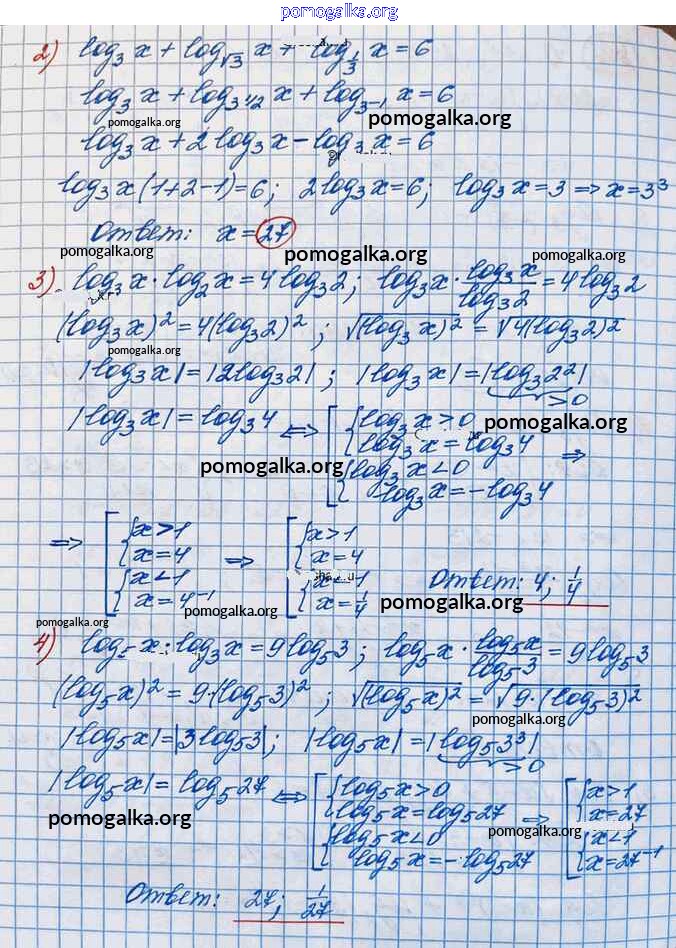 pomogalka.org
2) log₃ x + log_√3 x + log_1/3 x = 6
log₃ x + log_3^1/2 x + log_3^-1 x = 6
pomogalka.org pomogalka.org
log₃ x + 2 log₃ x - log₃ x = 6
log₃ x (1+2-1) = 6; 2 log₃ x = 6; log₃ x = 3 => x = 3³
Ответ: x = 27
pomogalka.org pomogalka.org pomogalka.org
3) log₃ x · log₂ x = 4 log₃ 2; log₃ x · log₃ x / log₃ 2 = 4 log₃ 2
(log₃ x)² = 4 (log₃ 2)²; √(log₃ x)² = √4(log₃ 2)²
pomogalka.org
|log₃ x| = |2 log₃ 2|; |log₃ x| = |log₃ 2²|
>0
|log₃ x| = log₃ 4 <=> [ { log₃ x > 0
pomogalka.org
log₃ x = log₃ 4
pomogalka.org
{ log₃ x < 0 =>
log₃ x = - log₃ 4
=> [ { x > 1 => [ { x > 1
x = 4 x = 4
{ x < 1 { x < 1
x = 4⁻¹ x = 1/4
Ответ: 4; 1/4
pomogalka.org pomogalka.org
pomogalka.org
4) log₅ x · log₃ x = 9 log₅ 3; log₅ x · log₅ x / log₅ 3 = 9 log₅ 3
(log₅ x)² = 9·(log₅ 3)²; √(log₅ x)² = √9·(log₅ 3)²
pomogalka.org
|log₅ x| = |3 log₅ 3|; |log₅ x| = |log₅ 3³|
>0
|log₅ x| = log₅ 27 <=> [ { log₅ x > 0 [ { x > 1
log₅ x = log₅ 27 => x = 27
pomogalka.org pomogalka.org
{ log₅ x < 0 { x < 1
log₅ x = - log₅ 27 x = 27⁻¹
Ответ: 27; 1/27